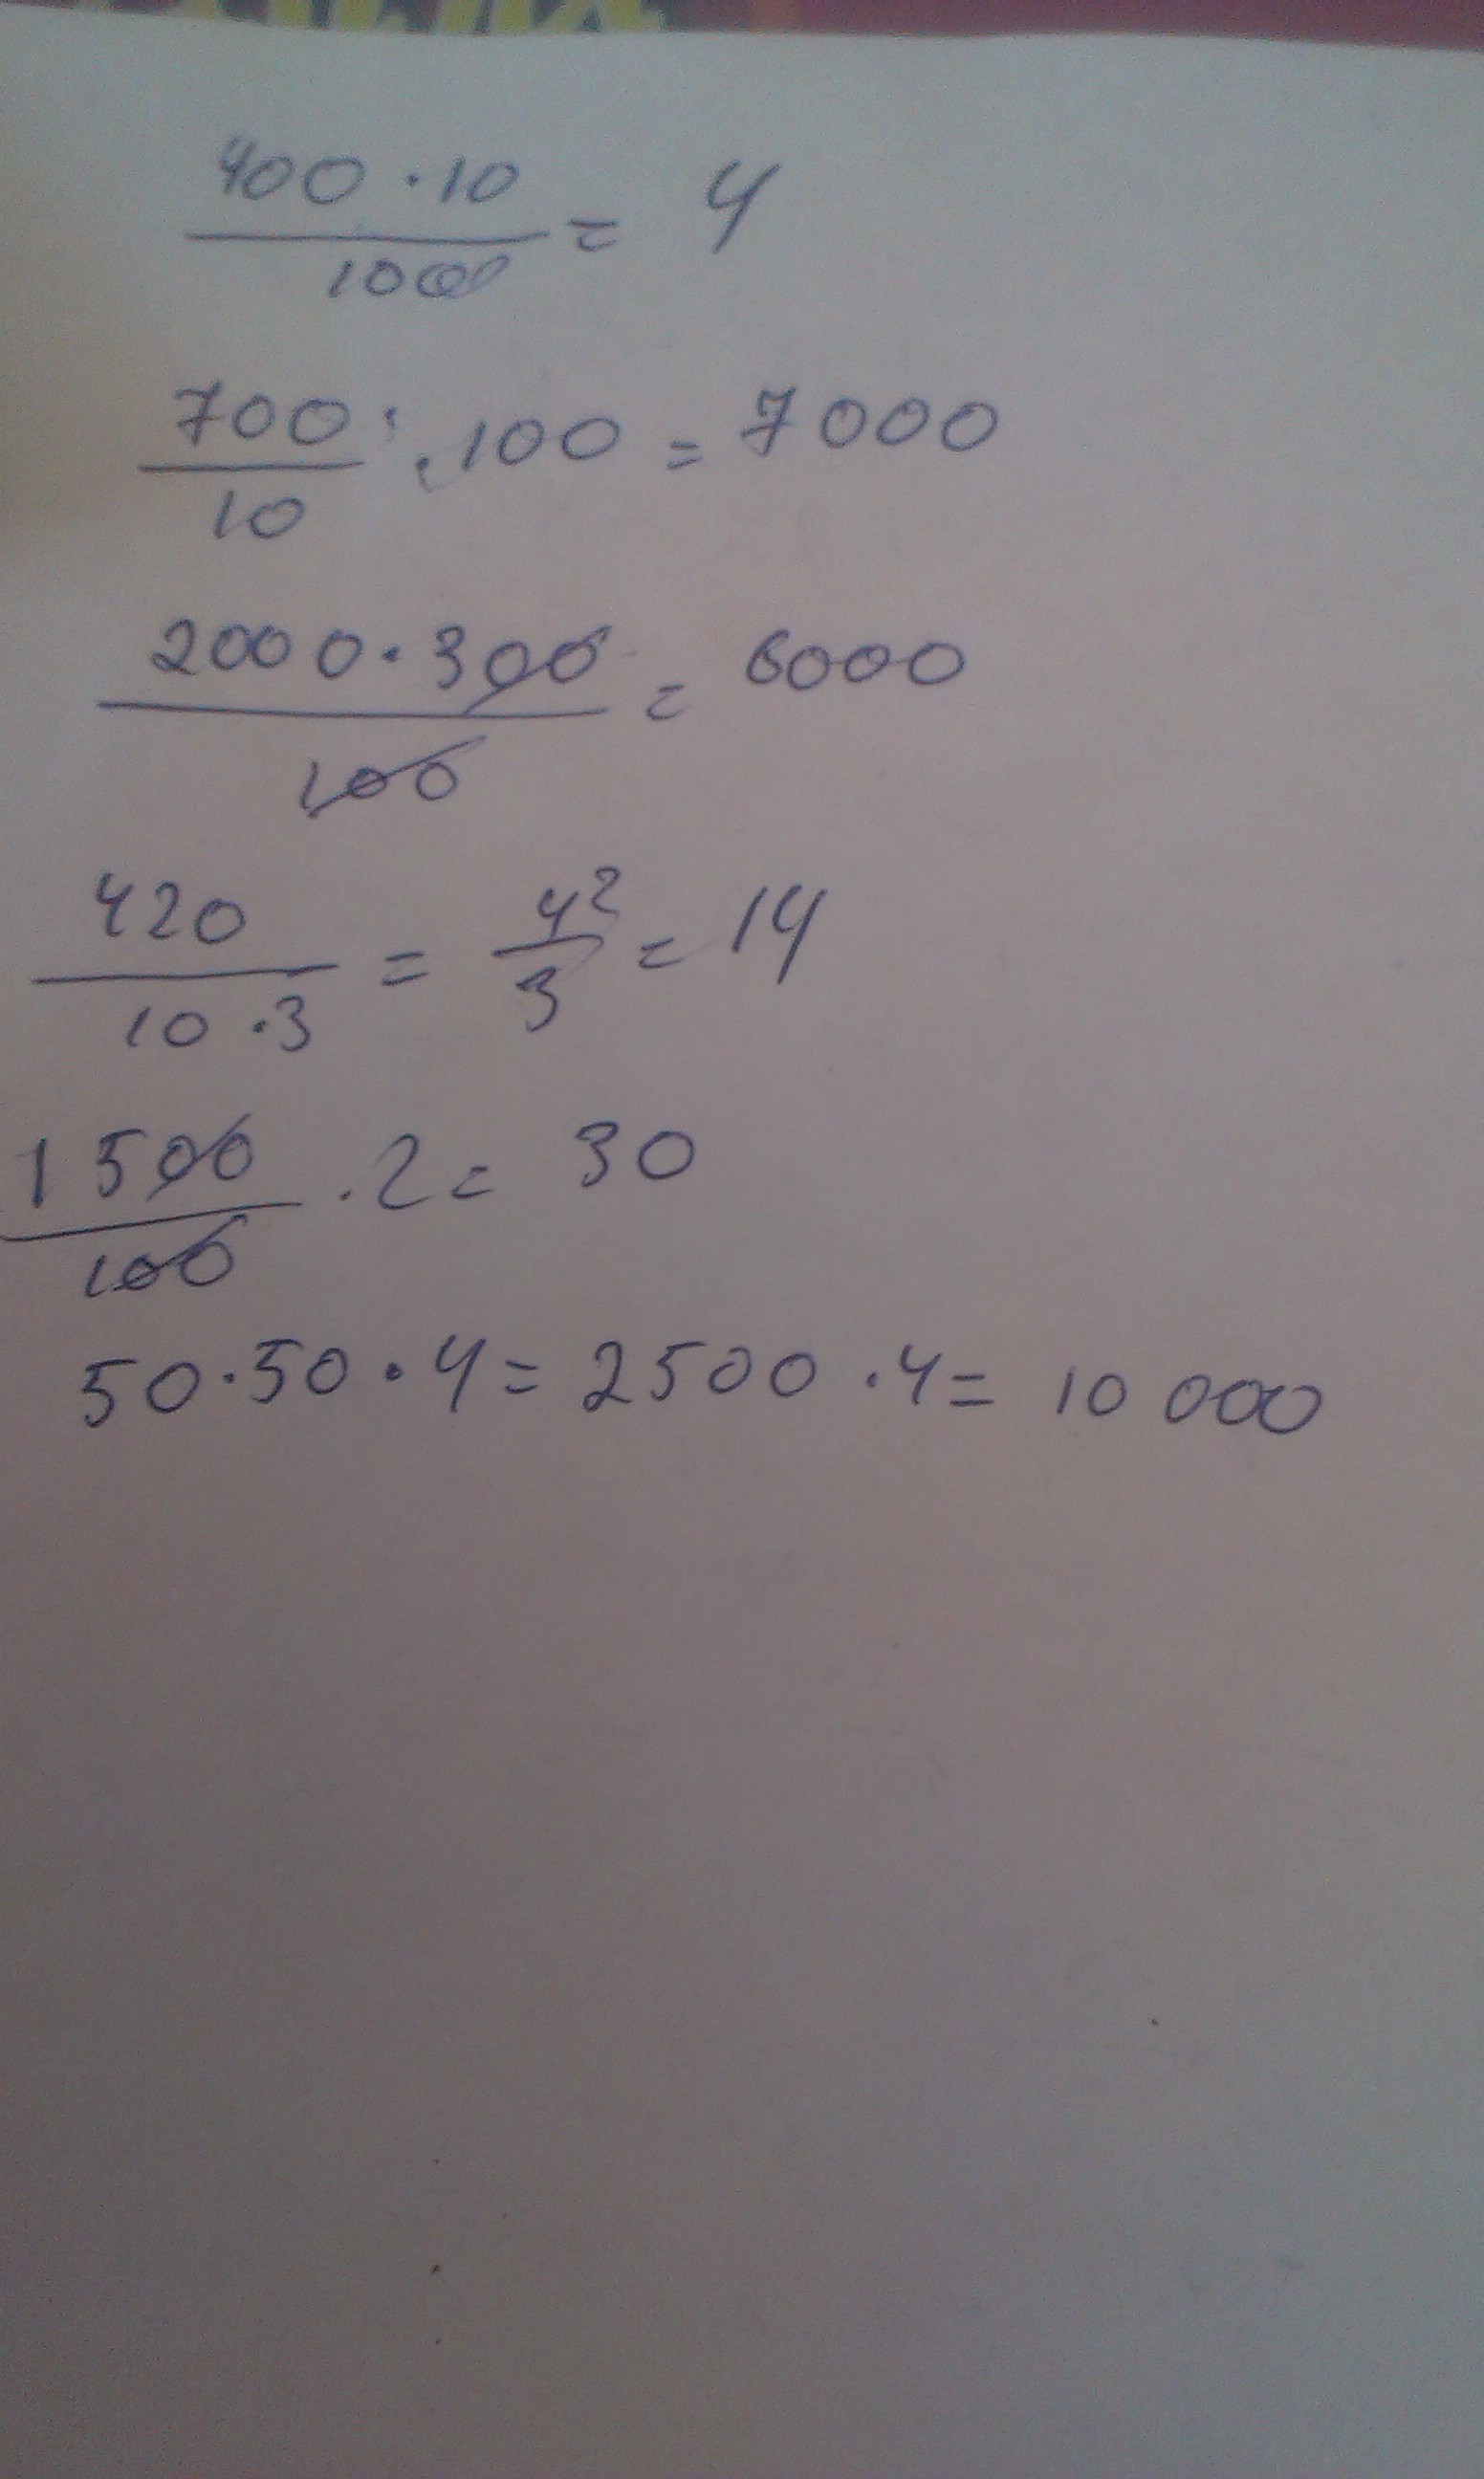 400 · 10 / 1000 = 4
700 / 10 · 100 = 7000
2000 · 300 / 100 = 6000
420 / 10 · 3 = 42 / 3 = 14
1500 / 100 · 2 = 30
50 · 50 · 4 = 2500 · 4 = 10 000